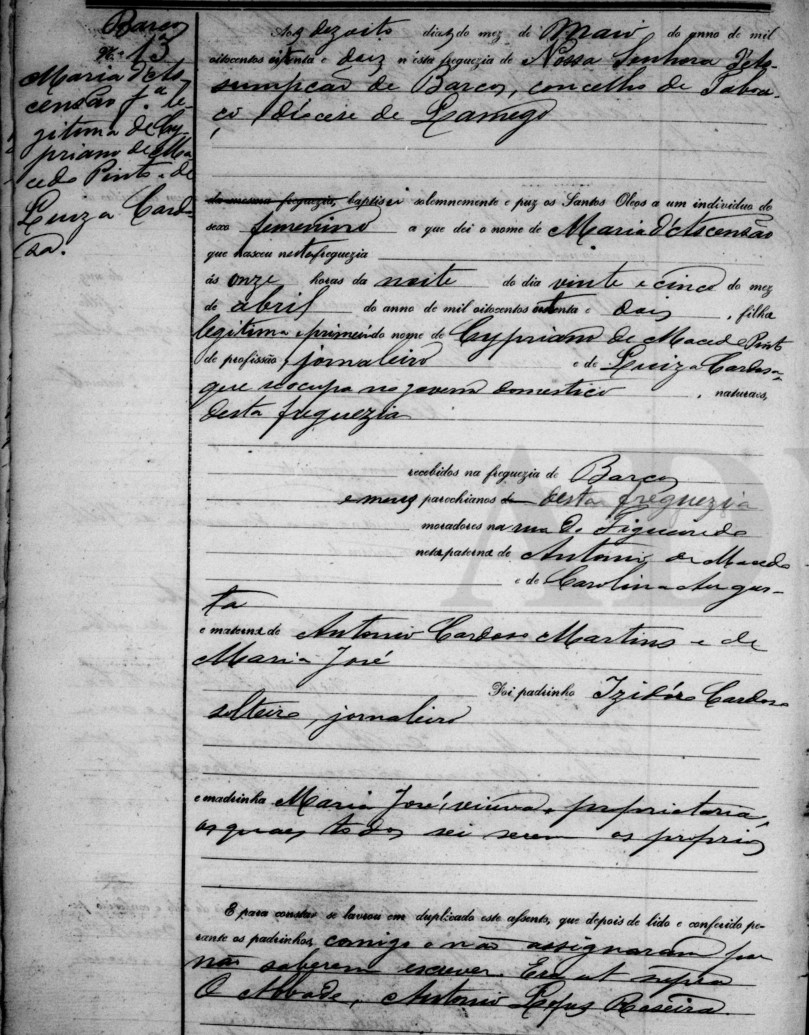 Barcos
Nº 13
Maria d'As-
censão fª le-
gitima de Cy-
priano de Ma-
cedo Pinto e de
Luiza Cardo-
sa.
Aos dezoito dias do mez de Maio do anno de mil
oitocentos oitenta e dois n'esta freguezia de Nossa Senhora d'As-
sumpcão de Barcos, concelho de Taboa-
ço, diocese de Lamego
da mesma freguezia, baptisei solemnemente e puz os Santos Oleos a um individuo do
sexo femenino a que dei o nome de Maria d'Ascensão
que nasceu nesta freguezia
ás onze horas da noite do dia vinte e cinco do mez
de abril do anno de mil oitocentos oitenta e dois, filha
legitima e primeira do nome de Cypriano de Macedo Pinto
de profissão jornaleiro e de Luiza Cardosa
que se occupa no governo domestico, naturaes,
desta freguezia
recebidos na freguezia de Barcos
e meus parochianos de desta freguezia
moradores na rua de Figueiredo
neta paterna de Antonio de Macedo
e de Carolina Augus-
ta
e materna de Antonio Cardoso Martins e de
Maria José
Foi padrinho Izidóro Cardoso
solteiro, jornaleiro
e madrinha Maria José, viuva, proprietaria,
os quaes todos sei serem os proprios
E para constar se lavrou em duplicado este assento, que depois de lido e conferido pe-
rante os padrinhos, comigo não assignaram por
não saberem escrever. Era ut supra
O Abbade, Antonio Lopes Roseira